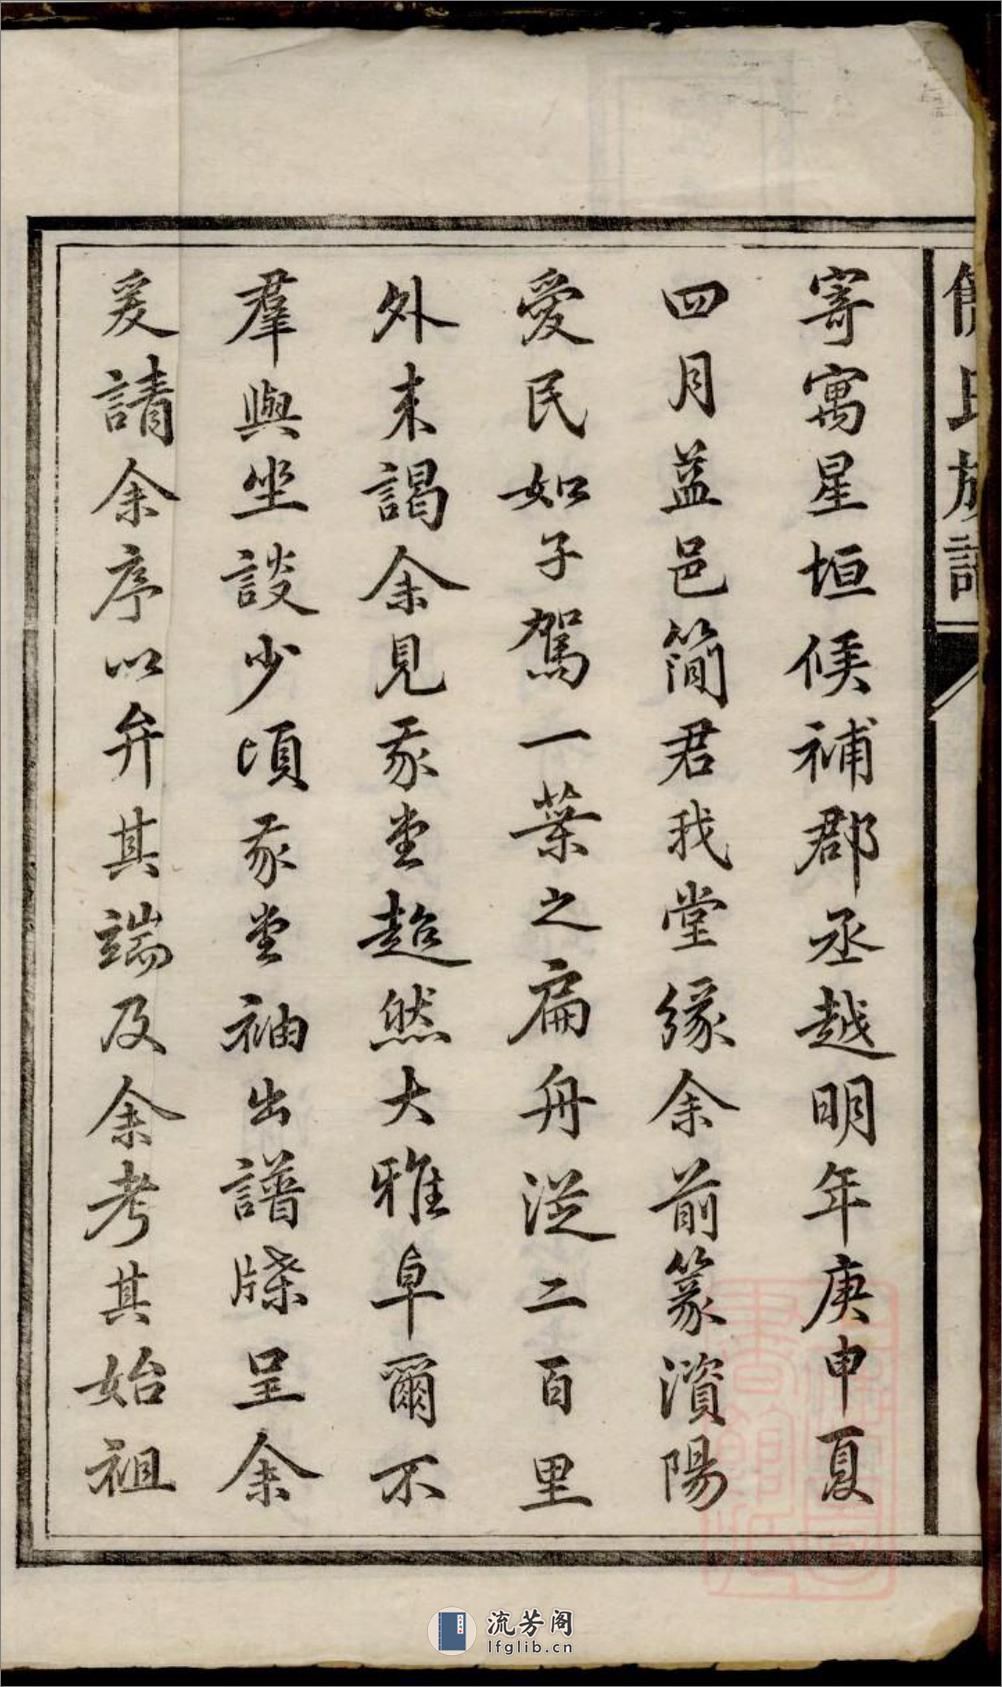 氏族譜
寄寓星垣候補郡丞越明年庚申夏
四月益邑簡君我堂緣余前篆濱陽
愛民如子駕一葉之扁舟從二百里
外来謁余見我堂超然大雅卓爾不
羣與坐談少頃我堂袖出譜牒呈余
爰請余序以弁其端及余考其始祖
流芳阁
lfglib.cn